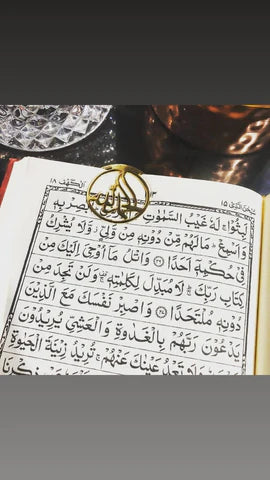 الكهف ١٨
سبحن الذى ١٥
لبثوا ۚ له غيب السموت
بصر به
واسمع ؕ ما لهم من دونه من ولى ۫ ولا يشرك
فى حكمه احدا ﴿٢٦﴾ واتل ما اوحى اليك من
كتاب ربك ؕ لا مبدل لكلمته ۚ ولن تجد من
دونه ملتحدا ﴿٢٧﴾ واصبر نفسك مع الذين
يدعون ربهم بالغدوة والعشى يريدون
ولا تعد عينك عنهم ۚ تريد زينة الحيوة